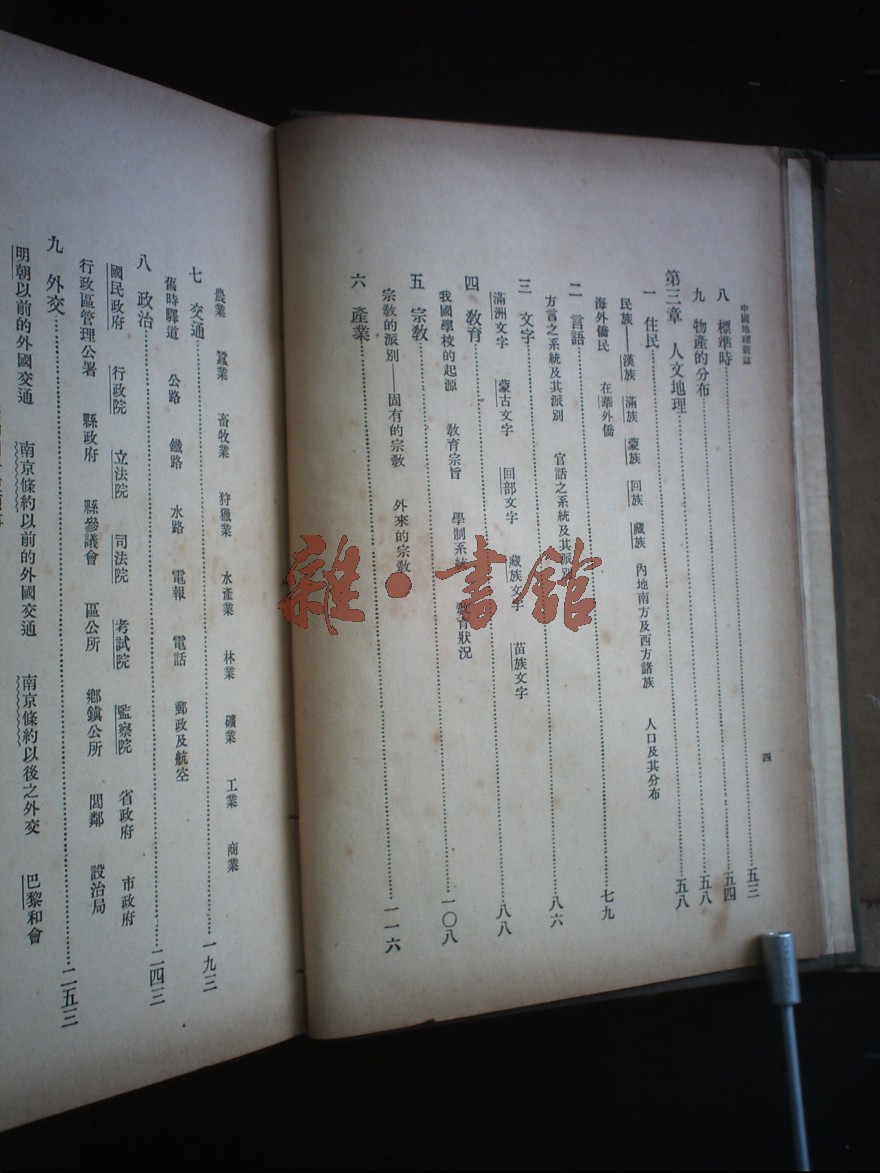 中國地理新誌　四
八　標準時……五三
九　物產的分布……五四
第三章　人文地理……五八
一　住民……五八
民族——漢族　滿族　蒙族　回族　藏族　內地南方及西方諸族　人口及其分布
海外僑民　在華外僑
二　言語……七九
方言之系統及其派別　官話之系統及其派別
三　文字……八六
滿洲文字　蒙古文字　回部文字　藏族文字　苗族文字
四　教育……八八
我國學校的起源　教育宗旨　學制系統　教育狀況
五　宗教……一〇八
宗教的派別——固有的宗教　外來的宗教
六　產業……一一六
農業　蠶業　畜牧業　狩獵業　水產業　林業　礦業　工業　商業
七　交通……一九三
舊時驛道　公路　鐵路　水路　電報　電話　郵政及航空
八　政治……二四三
國民政府　行政院　立法院　司法院　考試院　監察院　省政府　市政府
行政區管理公署　縣政府　縣參議會　區公所　鄉鎮公所　閭鄰　設治局
九　外交……二五三
明朝以前的外國交通　南京條約以前的外國交通　南京條約以後之外交　巴黎和會
雜·書館